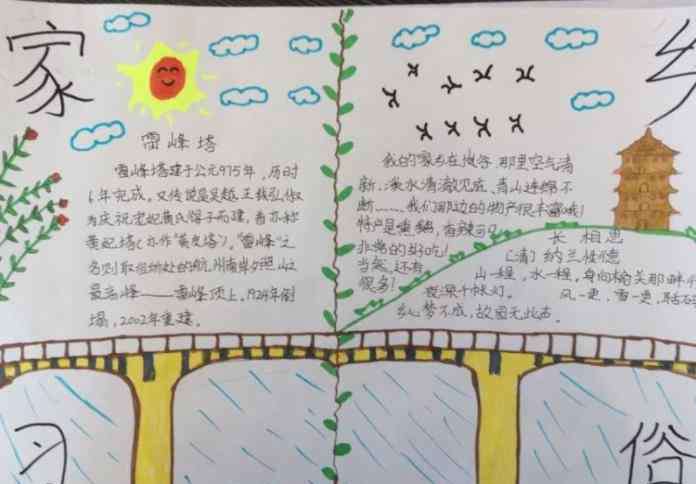 家
乡
雷峰塔
雷峰塔建于公元975年,历时
6年完成,又传说是吴越王钱弘俶
为庆祝宠妃黄氏得子而建,
黄妃塔(亦作"黄皮塔")。"雷峰"之
名则取
最高峰——雷峰顶上,1924年倒
塌,2002年重建。
我的家乡在 那里空气清
新,溪水清澈见底,青山连绵不
断……我们那边的物产很丰富哦!
特产是
非常的好吃!
当然,还有
很多!
长相思
〔清〕纳兰性德
山一程,水一程,身向榆关那畔
夜深千帐灯。
风一更,雪一更,聒碎
乡心梦不成,故园无此声。
习
俗